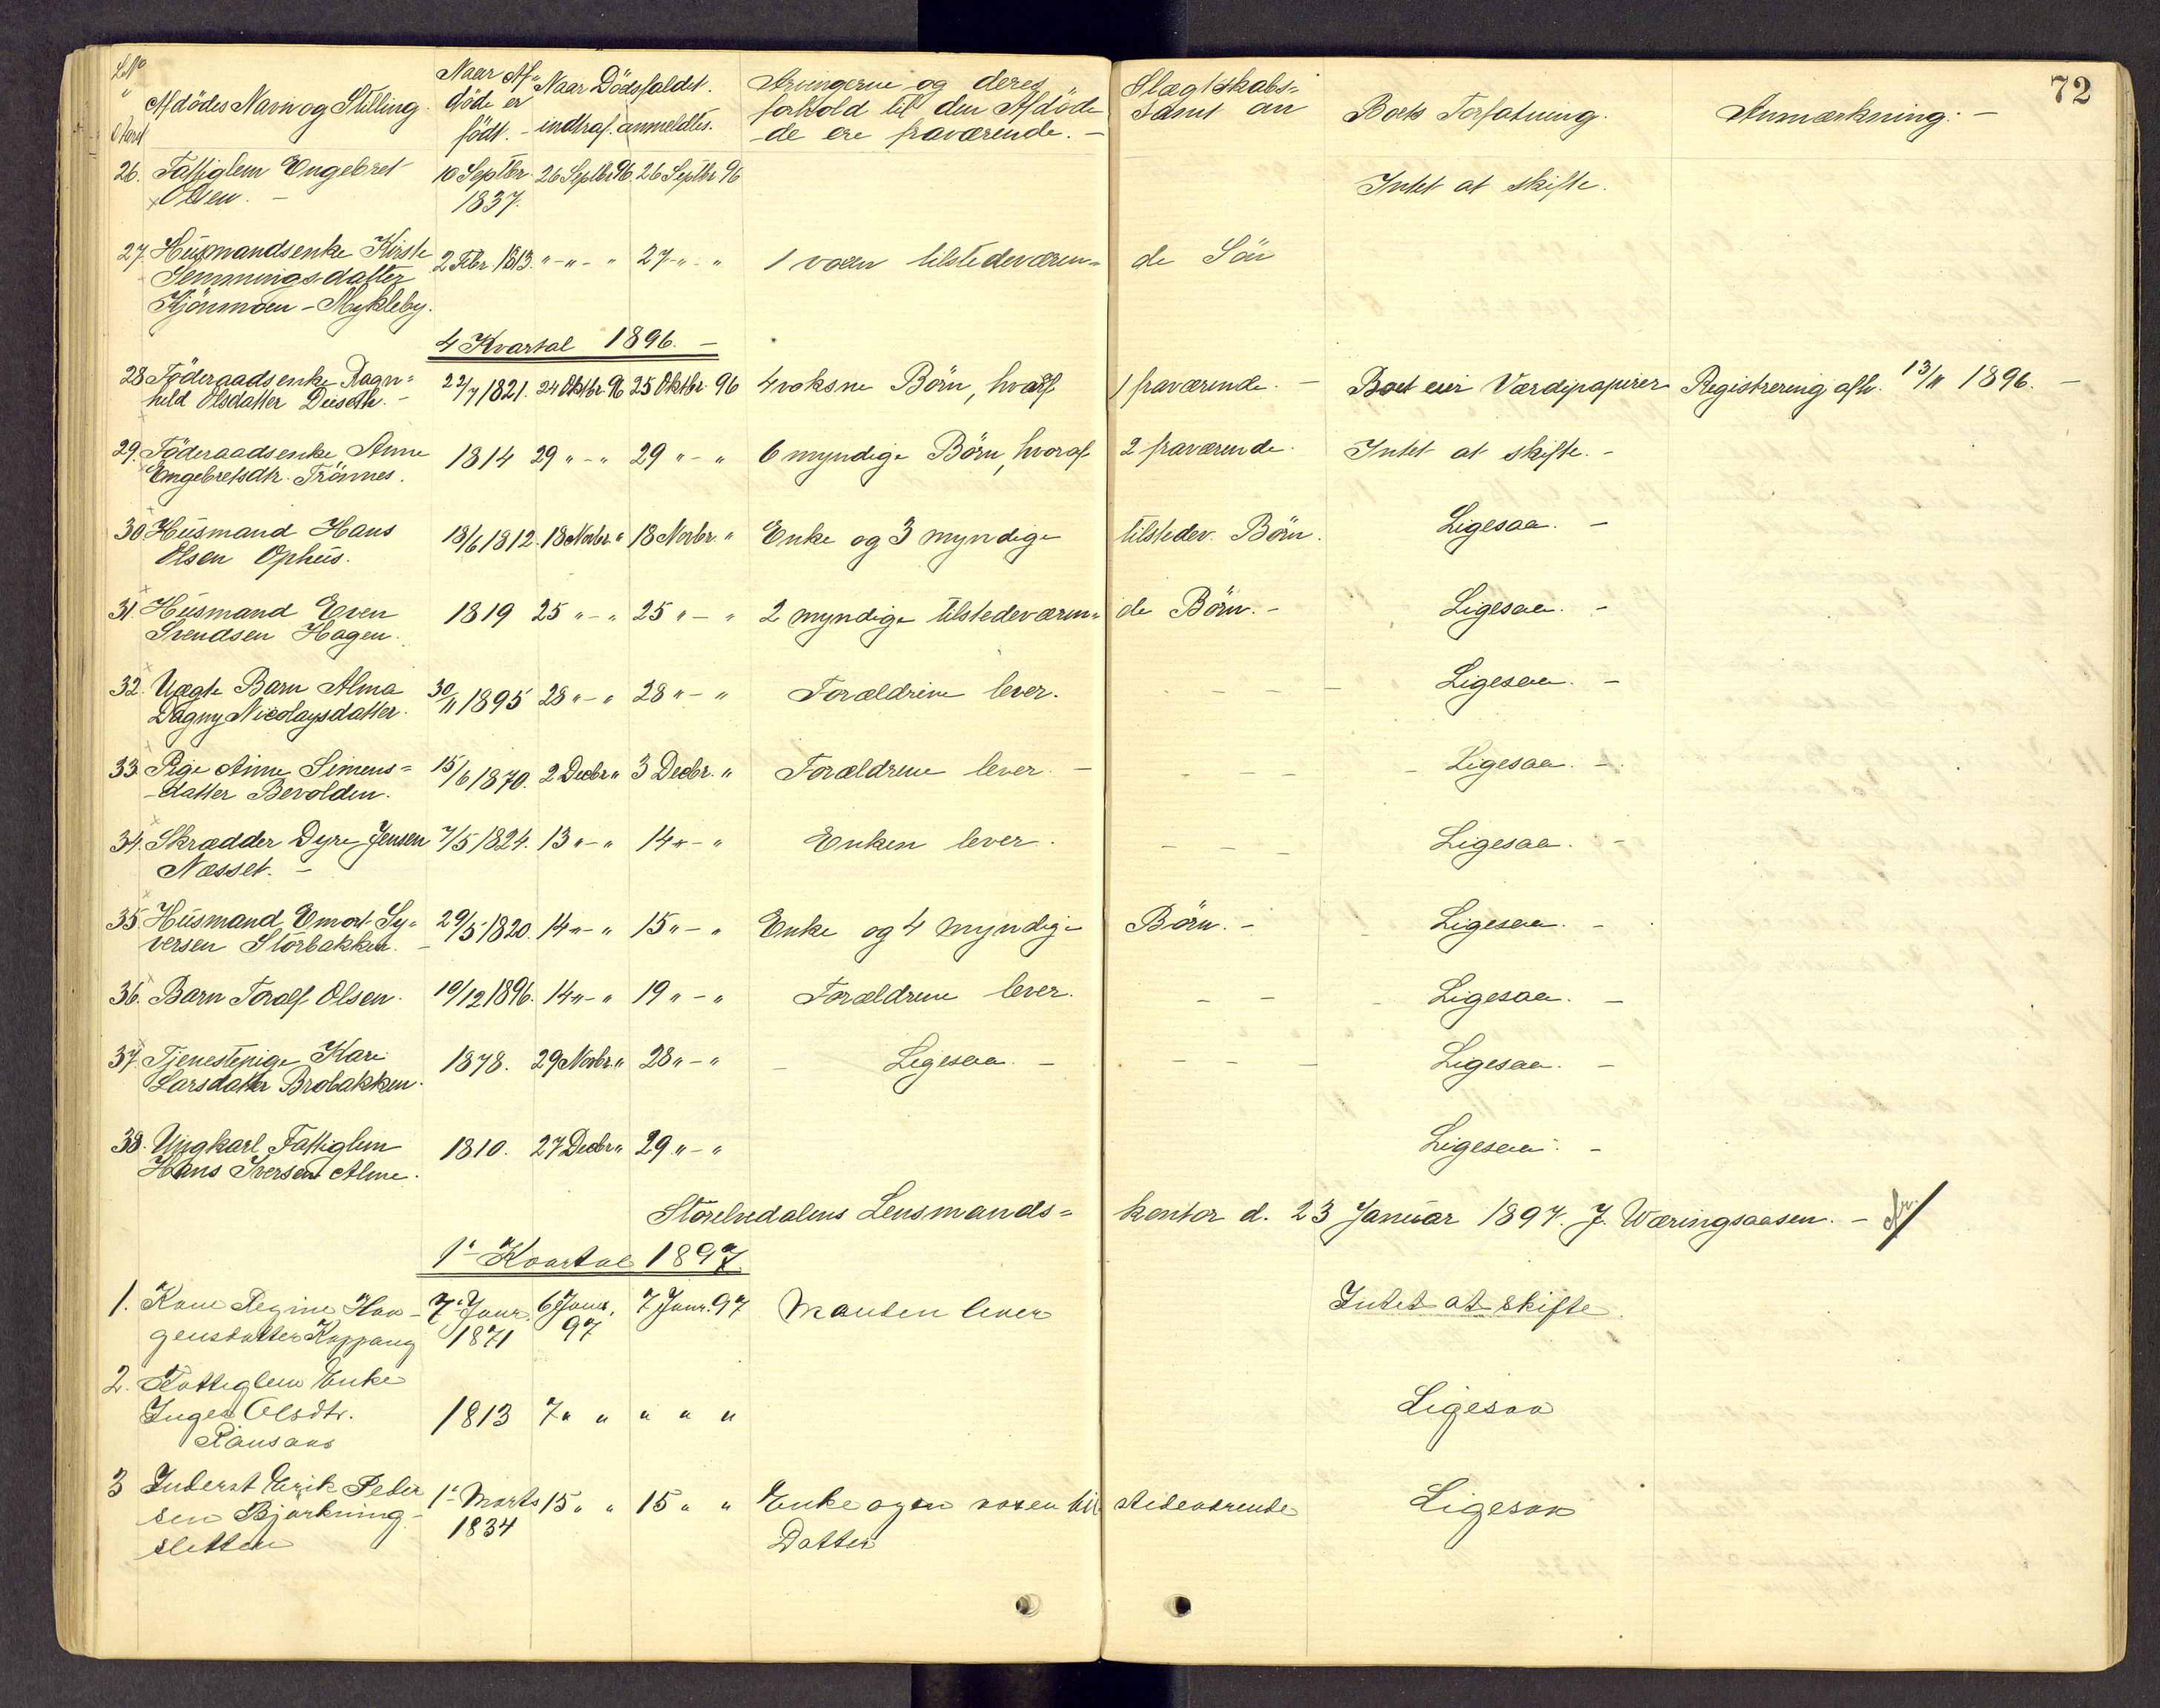 72
LNo Afdødes Navn og Stilling. Naar Af- døde er født. - Naar Dødsfaldet. indtraf. anmeldtes. Arvingerne og deres Slægtskabs-
forhold til den Afdøde samt om Boets Forfatning. Anmærkning: -
de ere fraværende. -
26. Fattiglem Engebret 10 Septbr. 26 Septbr 96. 26 Septbr. 96 Intet at skifte.
Olsen. - 1837.
27. Husmandsenke Kirste 2 Febr. 1813. " - " - " 27 - " - " 1 voxen tilstedeværen= de Sön
Hemmingsdatter
Kjönmoen - Mykleby.
4 Kvartal 1896. -
28. Föderaadsenke Ragn= 22/7 1821. 24 Oktbr. 96 25 Oktbr. 96 4 voksne Börn, hvoraf 1 fraværende. - Boet eier Værdipapirer Registrering afh. 13/11 1896. -
hild Olsdatter Deiseth. -
29. Föderaadsenke Anne 1814 29 " - " 29 " - " 6 myndige Börn, hvoraf 2 fraværende. Intet at skifte. -
Engebretsdtr. Trönnes.
30. Husmand Hans 13/6 1812. 18 Novbr. " 18 Novbr. " Enke og 3 myndige tilstedev. Börn. Ligesaa. -
Olsen Ophus.
31. Husmand Even 1819 25 " - " 25 " - " 2 myndige tilstedeværen= de Börn. - Ligesaa. -
Svendsen Hagen.
32. Uægte Barn Alma 30/11 1895 28 " - " 28 " - " Forældrene lever. - - - - Ligesaa. -
Dagny Nicolaysdatter.
33. Pige Anne Simens= 15/6 1870. 2 Decbr " 3 Decbr. " Forældrene lever. - - - - - Ligesaa. -
datter Bevolden.
34. Skrædder Dyre Jensen 7/5 1824. 13 " - " 14 " - " Enken lever. - - - - Ligesaa. -
Næsset. -
35. Husmand Emort Sy= 29/5 1820. 14 " - " 15 " - " Enke og 4 myndige Börn. - Ligesaa. -
versen Storbakken. -
36. Barn Toralf Olsen. 10/12 1896. 14 " - " 19 " - " Forældrene lever. - - - Ligesaa. -
37. Tjenestepige Kari 1878. 29 Novbr. " 28 " - " - Ligesaa. - - - - Ligesaa. -
Larsdatter Brobakken.
38. Ungkarl Fattiglem 1810. 27 Decbr " 29 " - " Ligesaa. -
Hans Iversen Alme.
Storelvedalens Lensmands= kontor d. 23 Januar 1897. J. Wæringsaasen. -
1ste Kvartal 1897.
1. Kone Regine Haa- 7 Janr. 6 Janr. 7 Janr. 97 Manden lever Intet at skifte
gensdatter Koppang 1871 97
2. Fattiglem Enke
Inger Olsdtr. 1813 7 " " " " " Ligesaa
3 Inderst Erik Peder 1ste Marts 15 " " 15 " " Enke og en voxen til stedeværende Ligesaa
sen Bjørkning- 1834 Datter
sletten